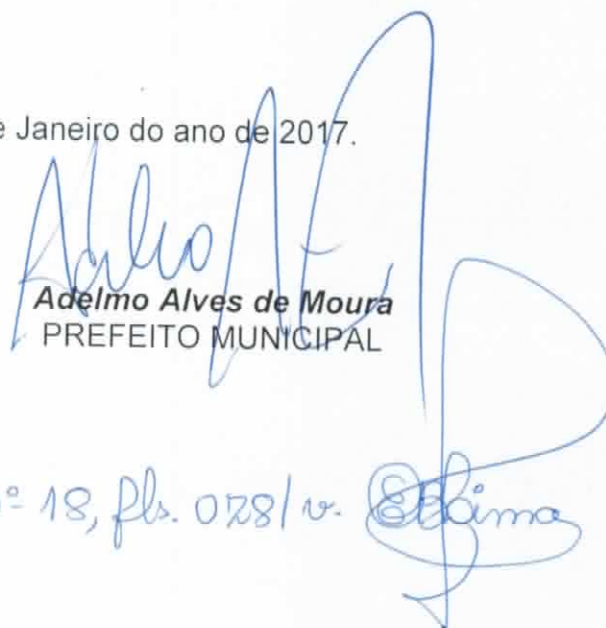 e Janeiro do ano de 2017.
Adelmo Alves de Moura
PREFEITO MUNICIPAL
nº 18, fls. 028/v.